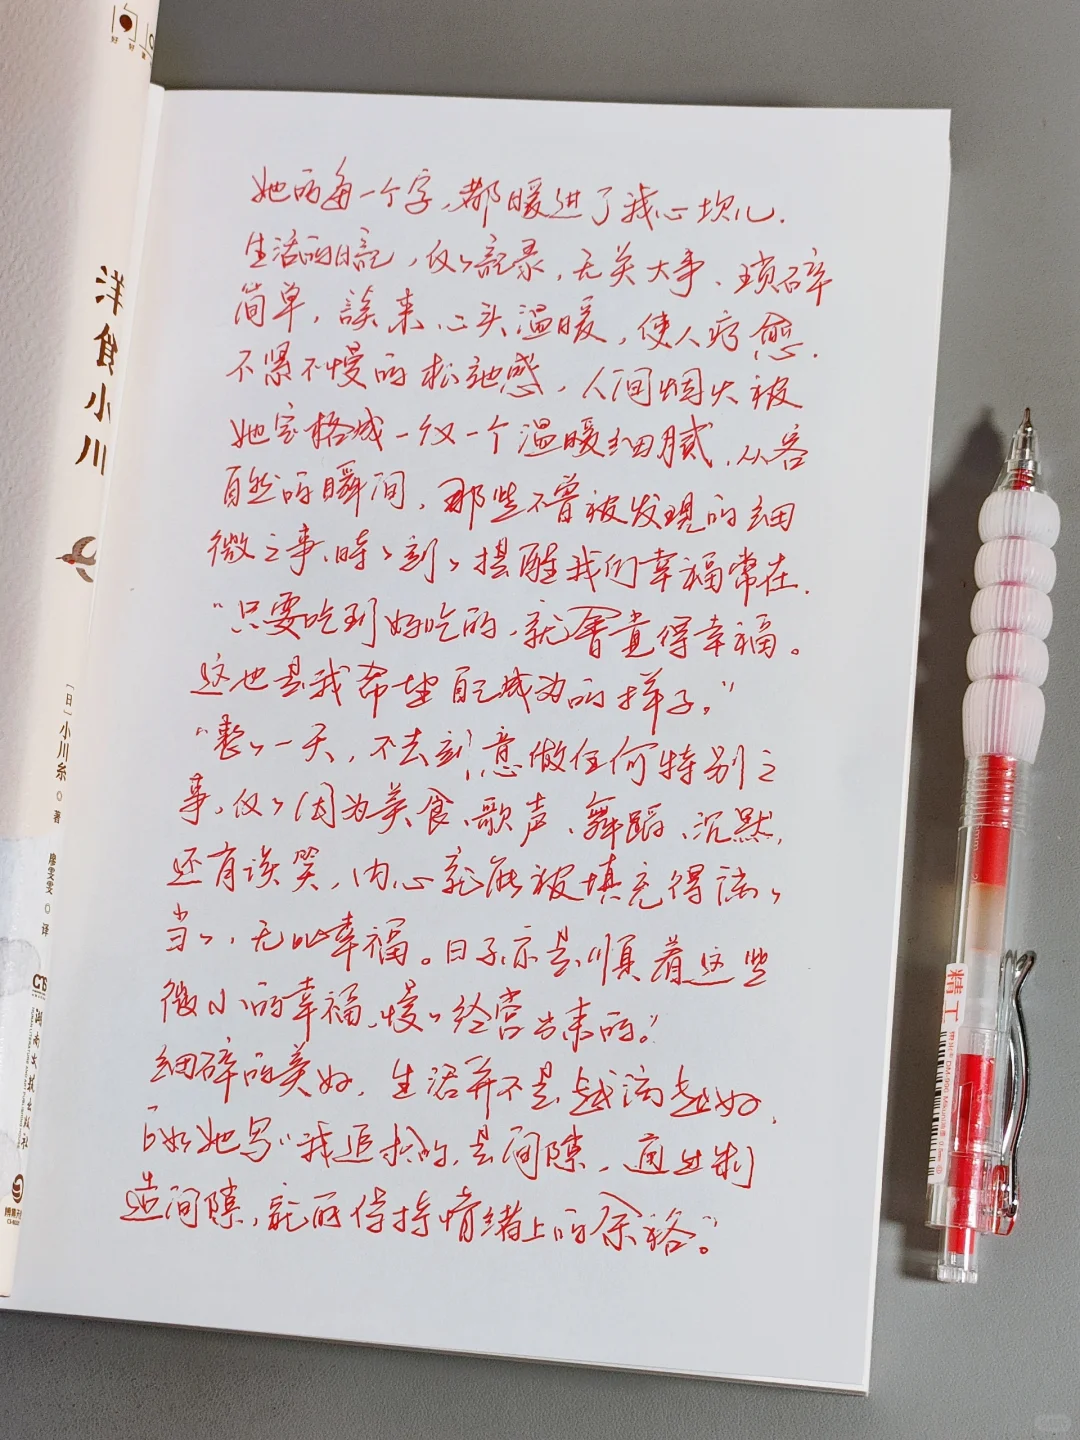 好好
洋食小川
[日]小川糸◎著
廖雯雯◎译
湖南文艺出版社
博集天卷
她的每一个字,都暖进了我心坎儿.
生活的日記,仅々記录,无关大事、琐碎
简单,读来心头温暖,使人疗愈.
不紧不慢的松弛感,人间烟火被
她定格成一纹一个温暖细腻、从容
自然的瞬间,那些不曾被发現的细
微之事、時々刻々提醒我们幸福常在.
“只要吃到好吃的,就會覚得幸福。
这也是我希望自己成为的样子。”
“整々一天,不去刻意做任何特别之
事,仅々因为美食、歌声、舞蹈、沉默,
还有谈笑,内心就能被填充得满々
当々,无比幸福。日子亦是順着这些
微小的幸福,慢々经营出来的。”
细碎的美好,生活并不是越满越好,
正如她写“我追求的,是间隙,通过制
造间隙,就能保持情绪上的余裕。”
精工